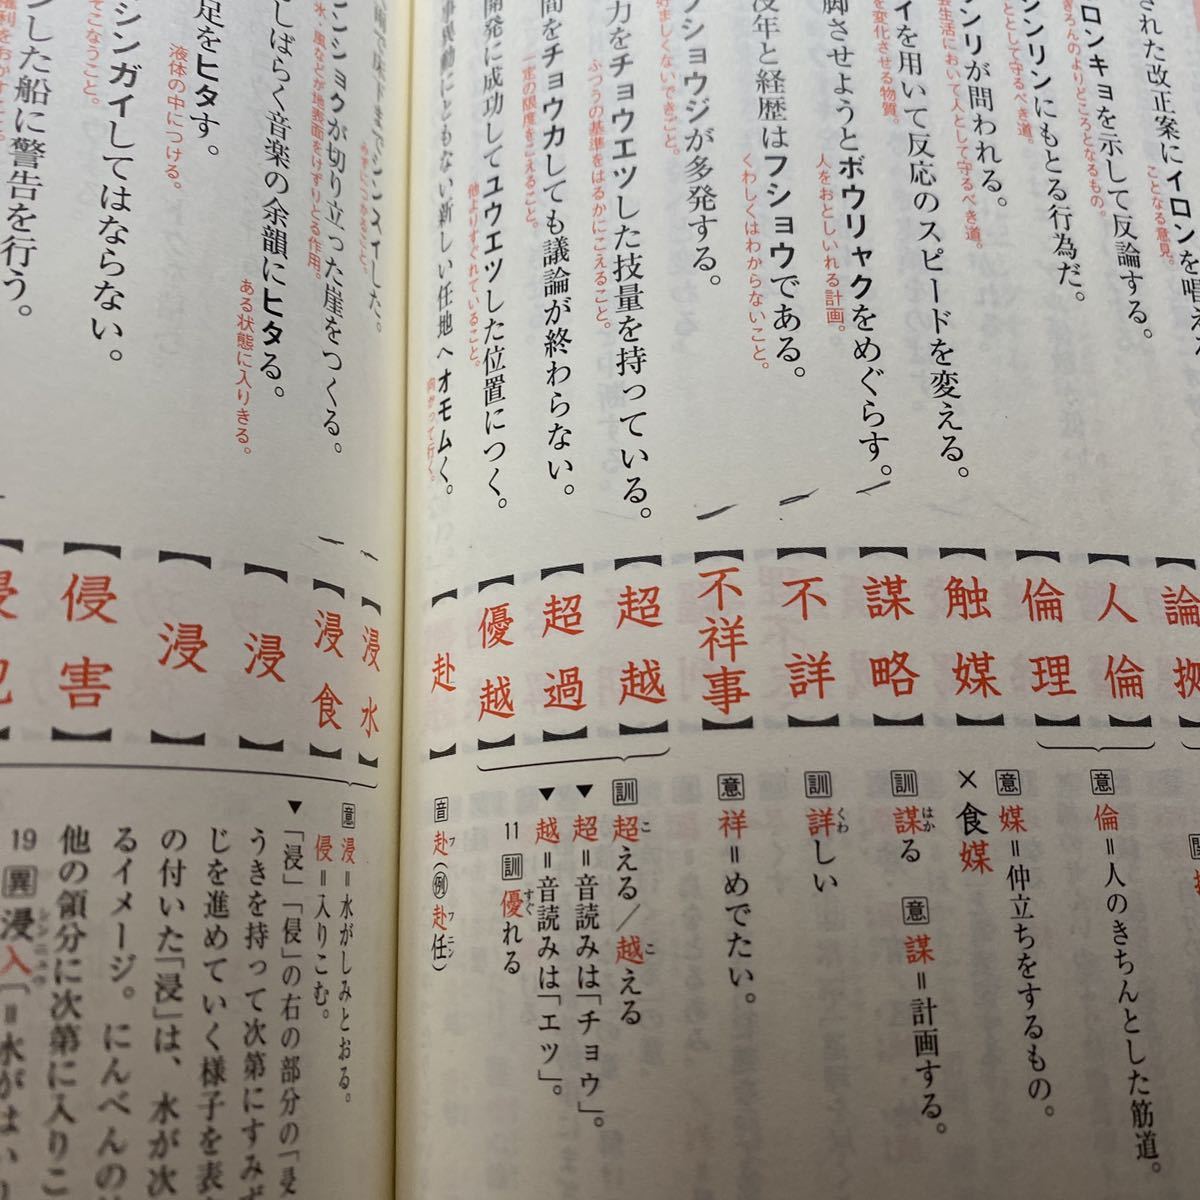 された改正案にイロンを唱え
ことなる意見。
ロンキョを示して反論する。
ぎろんのよりどころとなるもの。
ンリンにもとる行為だ。
として守るべき道。
ンリが問われる。
会生活において人として守るべき道。
イを用いて反応のスピードを変える。
を変化させる物質。
脚させようとボウリャクをめぐらす。
人をおとしいれる計画。
没年と経歴はフショウである。
くわしくはわからないこと。
フショウジが多発する。
好ましくないできごと。
力をチョウエツした技量を持っている。
ふつうの基準をはるかにこえること。
間をチョウカしても議論が終わらない。
一定の限度をこえること。
開発に成功してユウエツした位置につく。
他よりすぐれていること。
事異動にともない新しい任地へオモムく。
向かって行く。
論拠
人倫
倫理
触媒
謀略
不詳
不祥事
超越
超過
優越
赴
意 倫＝人のきちんとした筋道。
意 媒＝仲立ちをするもの。
×食媒
訓 謀る 意 謀＝計画する。
はか
訓 詳しい
くわ
意 祥＝めでたい。
訓 超える／越える
こ こ
▼超＝音読みは「チョウ」。
▼越＝音読みは「エツ」。
11 訓 優れる
すぐ
音 赴（例赴任）
フ フニン
床下までシンスイした。
水につかること。
ンショクが切り立った崖をつくる。
水・風などが地表面をけずりとる作用。
しばらく音楽の余韻にヒタる。
ある状態に入りきる。
足をヒタす。
液体の中につける。
シンガイしてはならない。
そこなうこと。
した船に警告を行う。
権利をおかすこと
浸水
浸食
浸
浸
侵害
侵犯
意 浸＝水がしみとおる。
侵＝入りこむ。
▼「浸」「侵」の右の部分の「𠬶
うきを持って次第にすみず
じを進めていく様子を表
の付いた「浸」は、水が次
るイメージ。にんべんの
他の領分に次第に入りこ
19 異 浸入（＝水がはい
シンニュウ